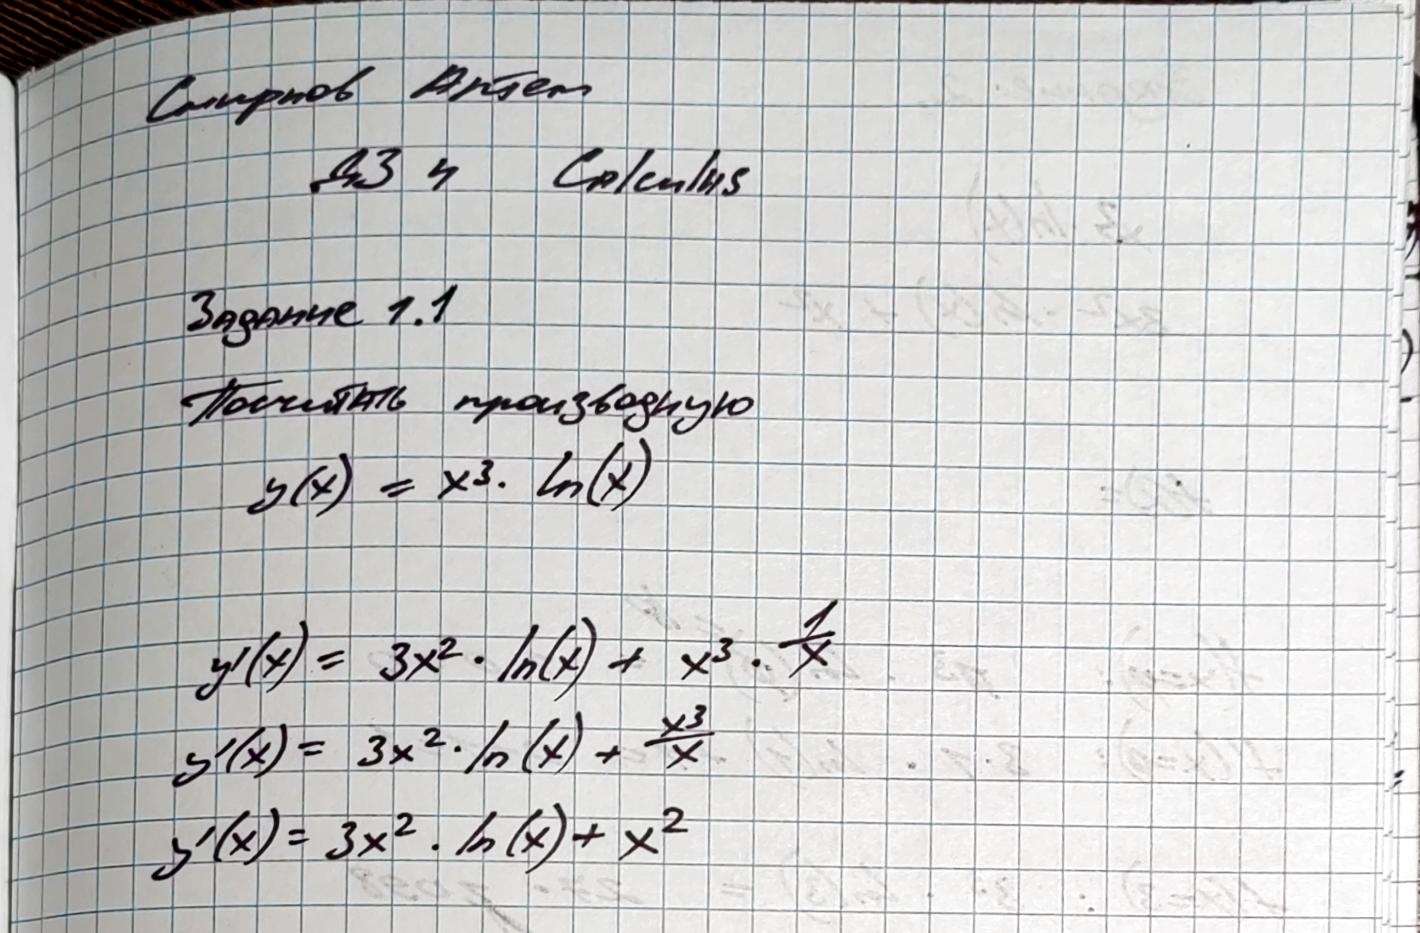 Смирнов Артем
ДЗ 4 Calculus
Задание 1.1
Посчитать производную
y(x) = x³ · ln(x)
y'(x) = 3x² · ln(x) + x³ · 1/x
y'(x) = 3x² · ln(x) + x³/x
y'(x) = 3x² · ln(x) + x²